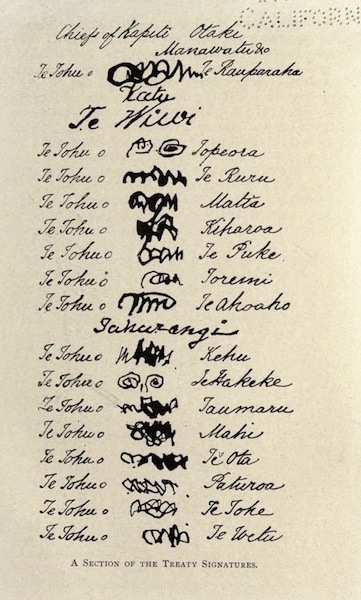 CALIFORN
Chiefs of Kapiti Otaki
Manawatu &c
Te Tohu o Te Rauparaha
Katu
Te Wiwi
Te Tohu o Topeora
Te Tohu o Te Ruru
Te Tohu o Matia
Te Tohu o Kiharoa
Te Tohu o Te Puke
Te Tohu o Toremi
Te Tohu o Te Ahoaho
Te Tohu o Kehu
Te Tohu o Te Hakeke
Te Tohu o Taumaru
Te Tohu o Mahi
Te Tohu o Te Ota
Te Tohu o Paturoa
Te Tohu o Te Toke
Te Tohu o Te Wetu
A SECTION OF THE TREATY SIGNATURES.